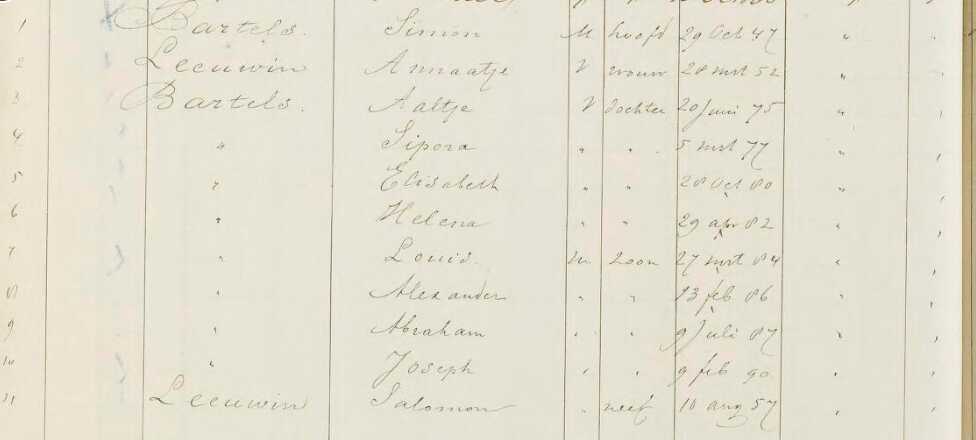 1 Bartels. Simon M hoofd 29 Oct 47 "
2 Leeuwin Annaatje V vrouw 28 mrt 52 "
3 Bartels. Aaltje V dochter 20 Juni 75 "
4 " Sipora " " 5 mrt 77 "
5 " Elisabeth " " 28 Oct 80 "
6 " Helena " " 29 apr 82 "
7 " Louis. M zoon 27 mrt 84 "
8 " Alexander " " 13 feb 86 "
9 " Abraham " " 9 Juli 87 "
10 " Joseph " " 9 feb 90 "
11 Leeuwin Salomon " neef 10 aug 57 "